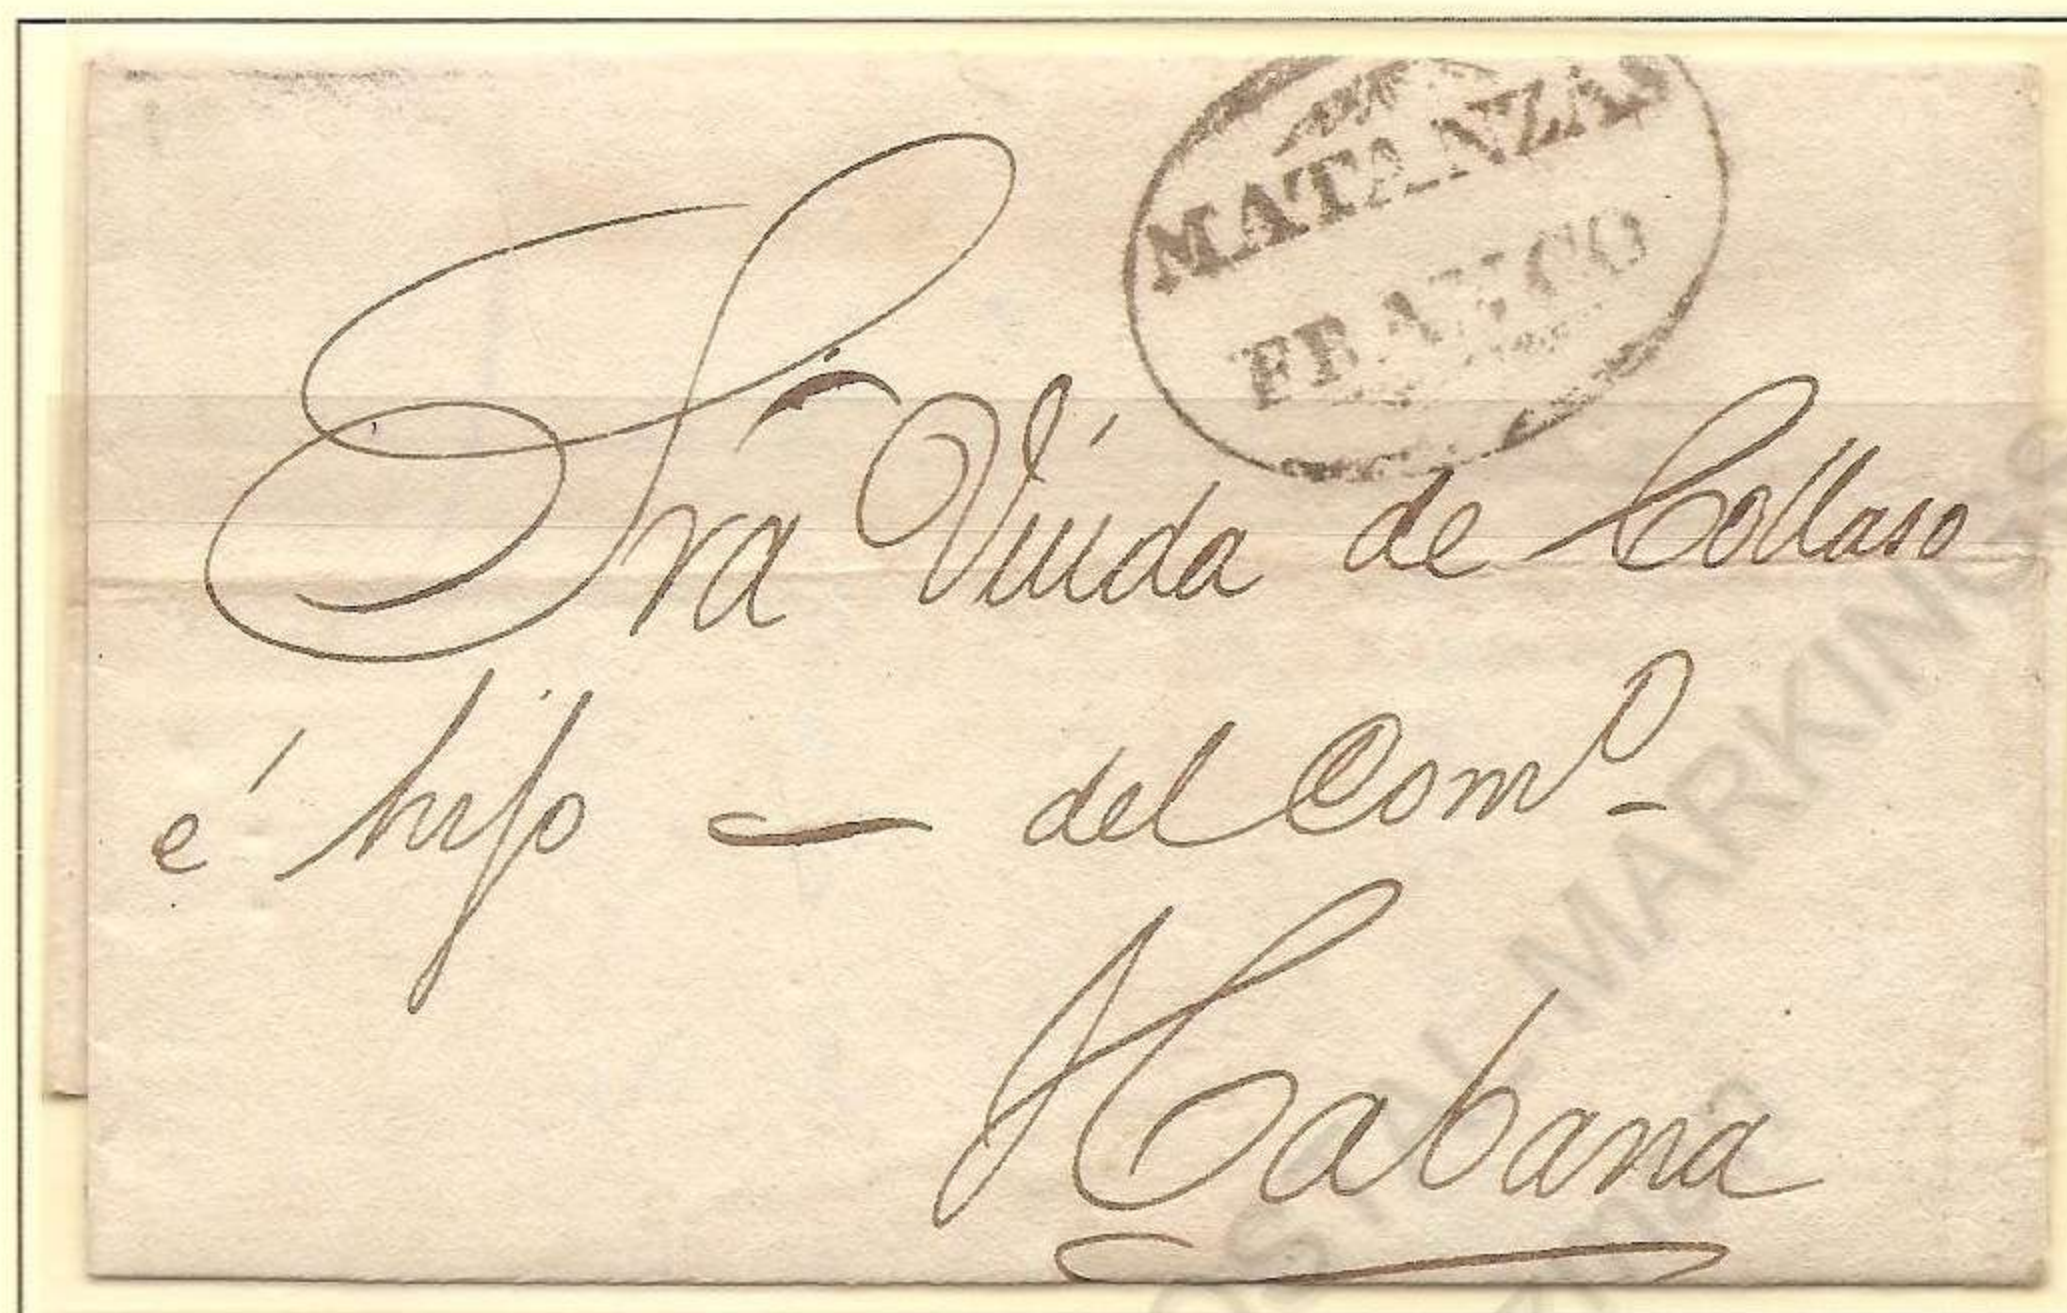 MATANZAS
FRANCO
Sra Viuda de Collaso
é hijo — del Comº
Habana
POSTAL MARKINGS